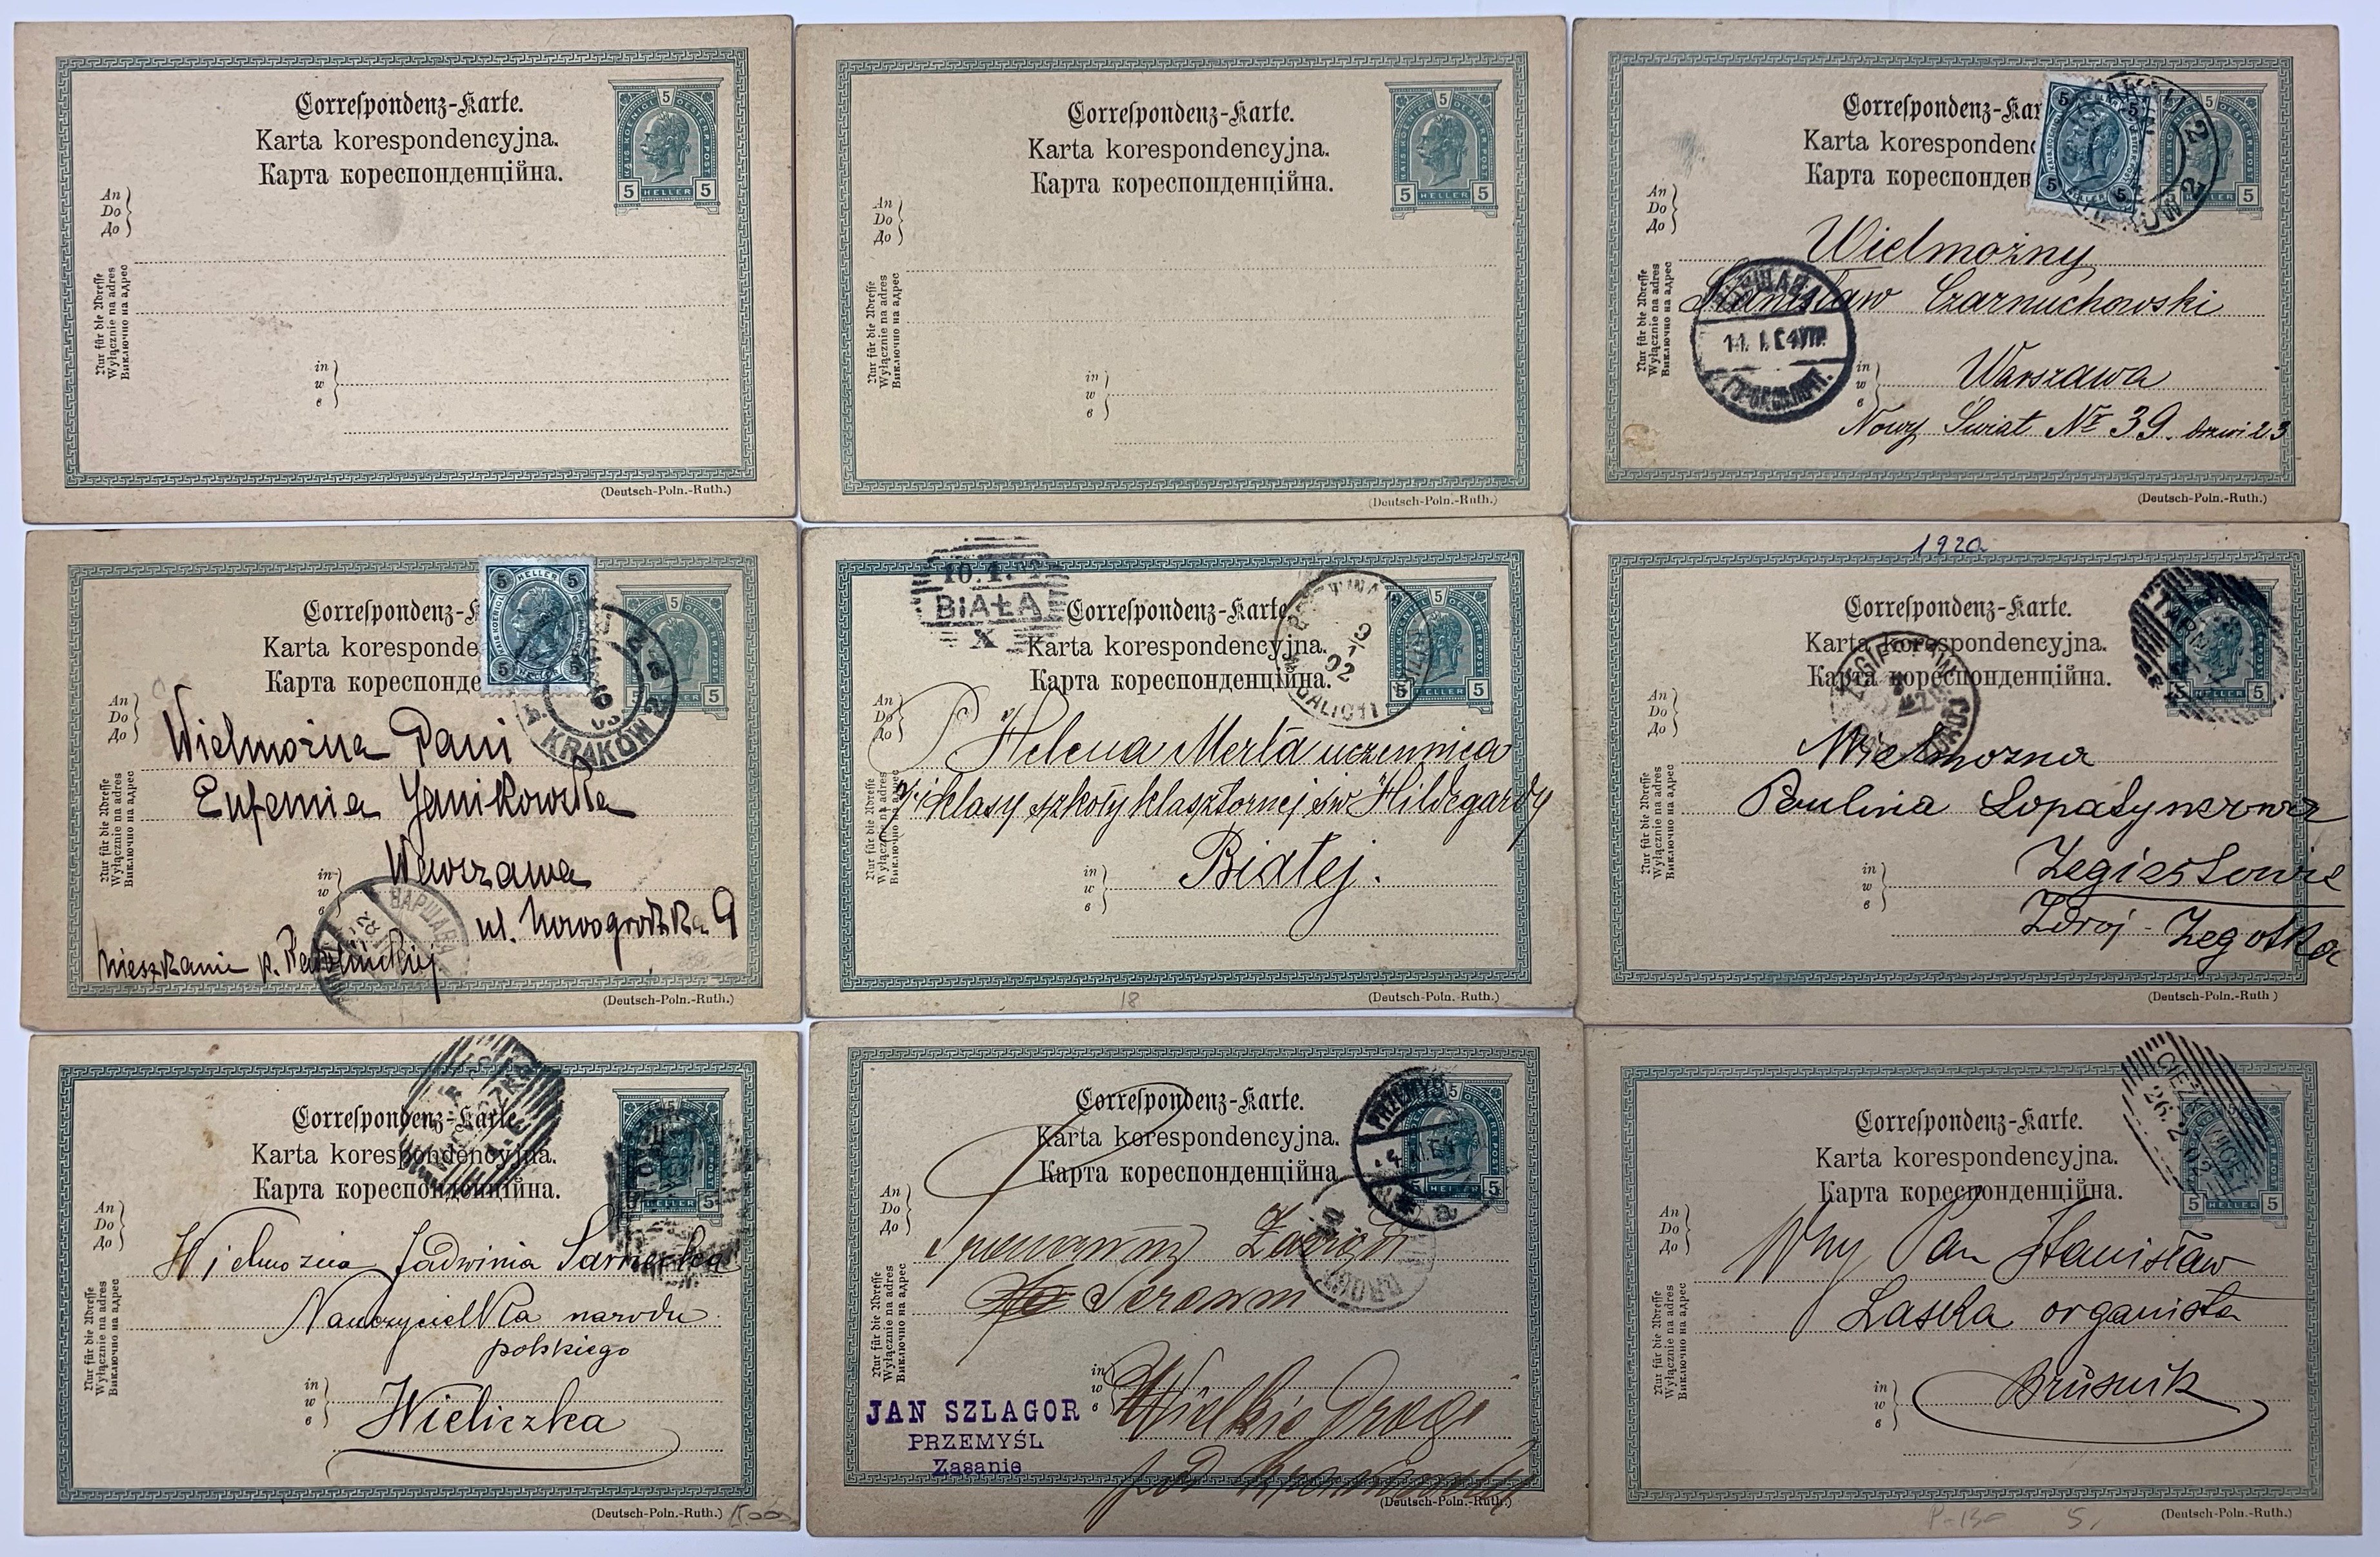 Correspondenz-Karte.
Karta korespondencyjna.
Карта кореспонденційна.
KAIS. KOENIGL. OESTERR. POST
5
5 HELLER 5
An
Do
До
Nur für die Adresse
Wyłącznie na adres
Виключно на адрес
in
w
в
(Deutsch-Poln.-Ruth.)
Correspondenz-Karte.
Karta korespondencyjna.
Карта кореспонденційна.
KAIS. KOENIGL. OESTERR. POST
5
5 HELLER 5
An
Do
До
Nur für die Adresse
Wyłącznie na adres
Виключно на адрес
in
w
в
(Deutsch-Poln.-Ruth.)
Correspondenz-Kar
Karta koresponden
Карта кореспонден
5 5
5 HELLER 5
An
Do
До
Wielmożny
Stanisław Czarnuchowski
ВАРШАВА
11. I. 04
Nur für die Adresse
Wyłącznie na adres
Виключно на адрес
in
w
в
Warszawa
Nowy Świat Nr 39. drzwi 23
(Deutsch-Poln.-Ruth.)
Correspondenz-K
Karta koresponde
Карта кореспонде
5 HELLER 5
5 5
KRAKÓW 2
An
Do
До
Wielmożna Pani
Eufemia Janikowska
Nur für die Adresse
Wyłącznie na adres
Виключно на адрес
in
w
в
Warszawa
ul. Nowogrodzka 9
ВАРШАВА
mieszkanie p.
(Deutsch-Poln.-Ruth.)
10. 1.
BIAŁA
X
Correspondenz-Karte.
Karta korespondencyjna.
Карта кореспонденційна.
9
1
02
5
5 HELLER 5
An
Do
До
P Helena Merta uczennica
klasy szkoły klasztornej św Hildegardy
Nur für die Adresse
Wyłącznie na adres
Виключно на адрес
in
w
в
Białej.
18
(Deutsch-Poln.-Ruth.)
1920
Correspondenz-Karte.
Karta korespondencyjna.
Карта кореспонденційна.
An
Do
До
Wielmożna
Paulina
Nur für die Adresse
Wyłącznie na adres
Виключно на адрес
in
w
в
Żegiestowie
Zdrój - Żegotka
(Deutsch-Poln.-Ruth.)
Correspondenz-Karte.
Karta korespondencyjna.
Карта кореспонденційна.
HELLER 5
An
Do
До
Wielmożna Jadwinia
Nauczycielka narodu
polskiego
Nur für die Adresse
Wyłącznie na adres
Виключно на адрес
in
w
в
Wieliczka
(Deutsch-Poln.-Ruth.)
Correspondenz-Karte.
Karta korespondencyjna.
Карта кореспонденційна.
PRZEMYŚL
5
An
Do
До
Nur für die Adresse
Wyłącznie na adres
Виключно на адрес
in
w
в
Wielkie Drogi
JAN SZLAGOR
PRZEMYŚL
Zasanie
(Deutsch-Poln.-Ruth.)
CIĘŻKOWICE
26. 2. 02
Correspondenz-Karte.
Karta korespondencyjna.
Карта кореспонденційна.
5 HELLER 5
An
Do
До
Wny Pan Stanisław
Laska organista
Nur für die Adresse
Wyłącznie na adres
Виключно на адрес
in
w
в
Bruśnik
(Deutsch-Poln.-Ruth.)